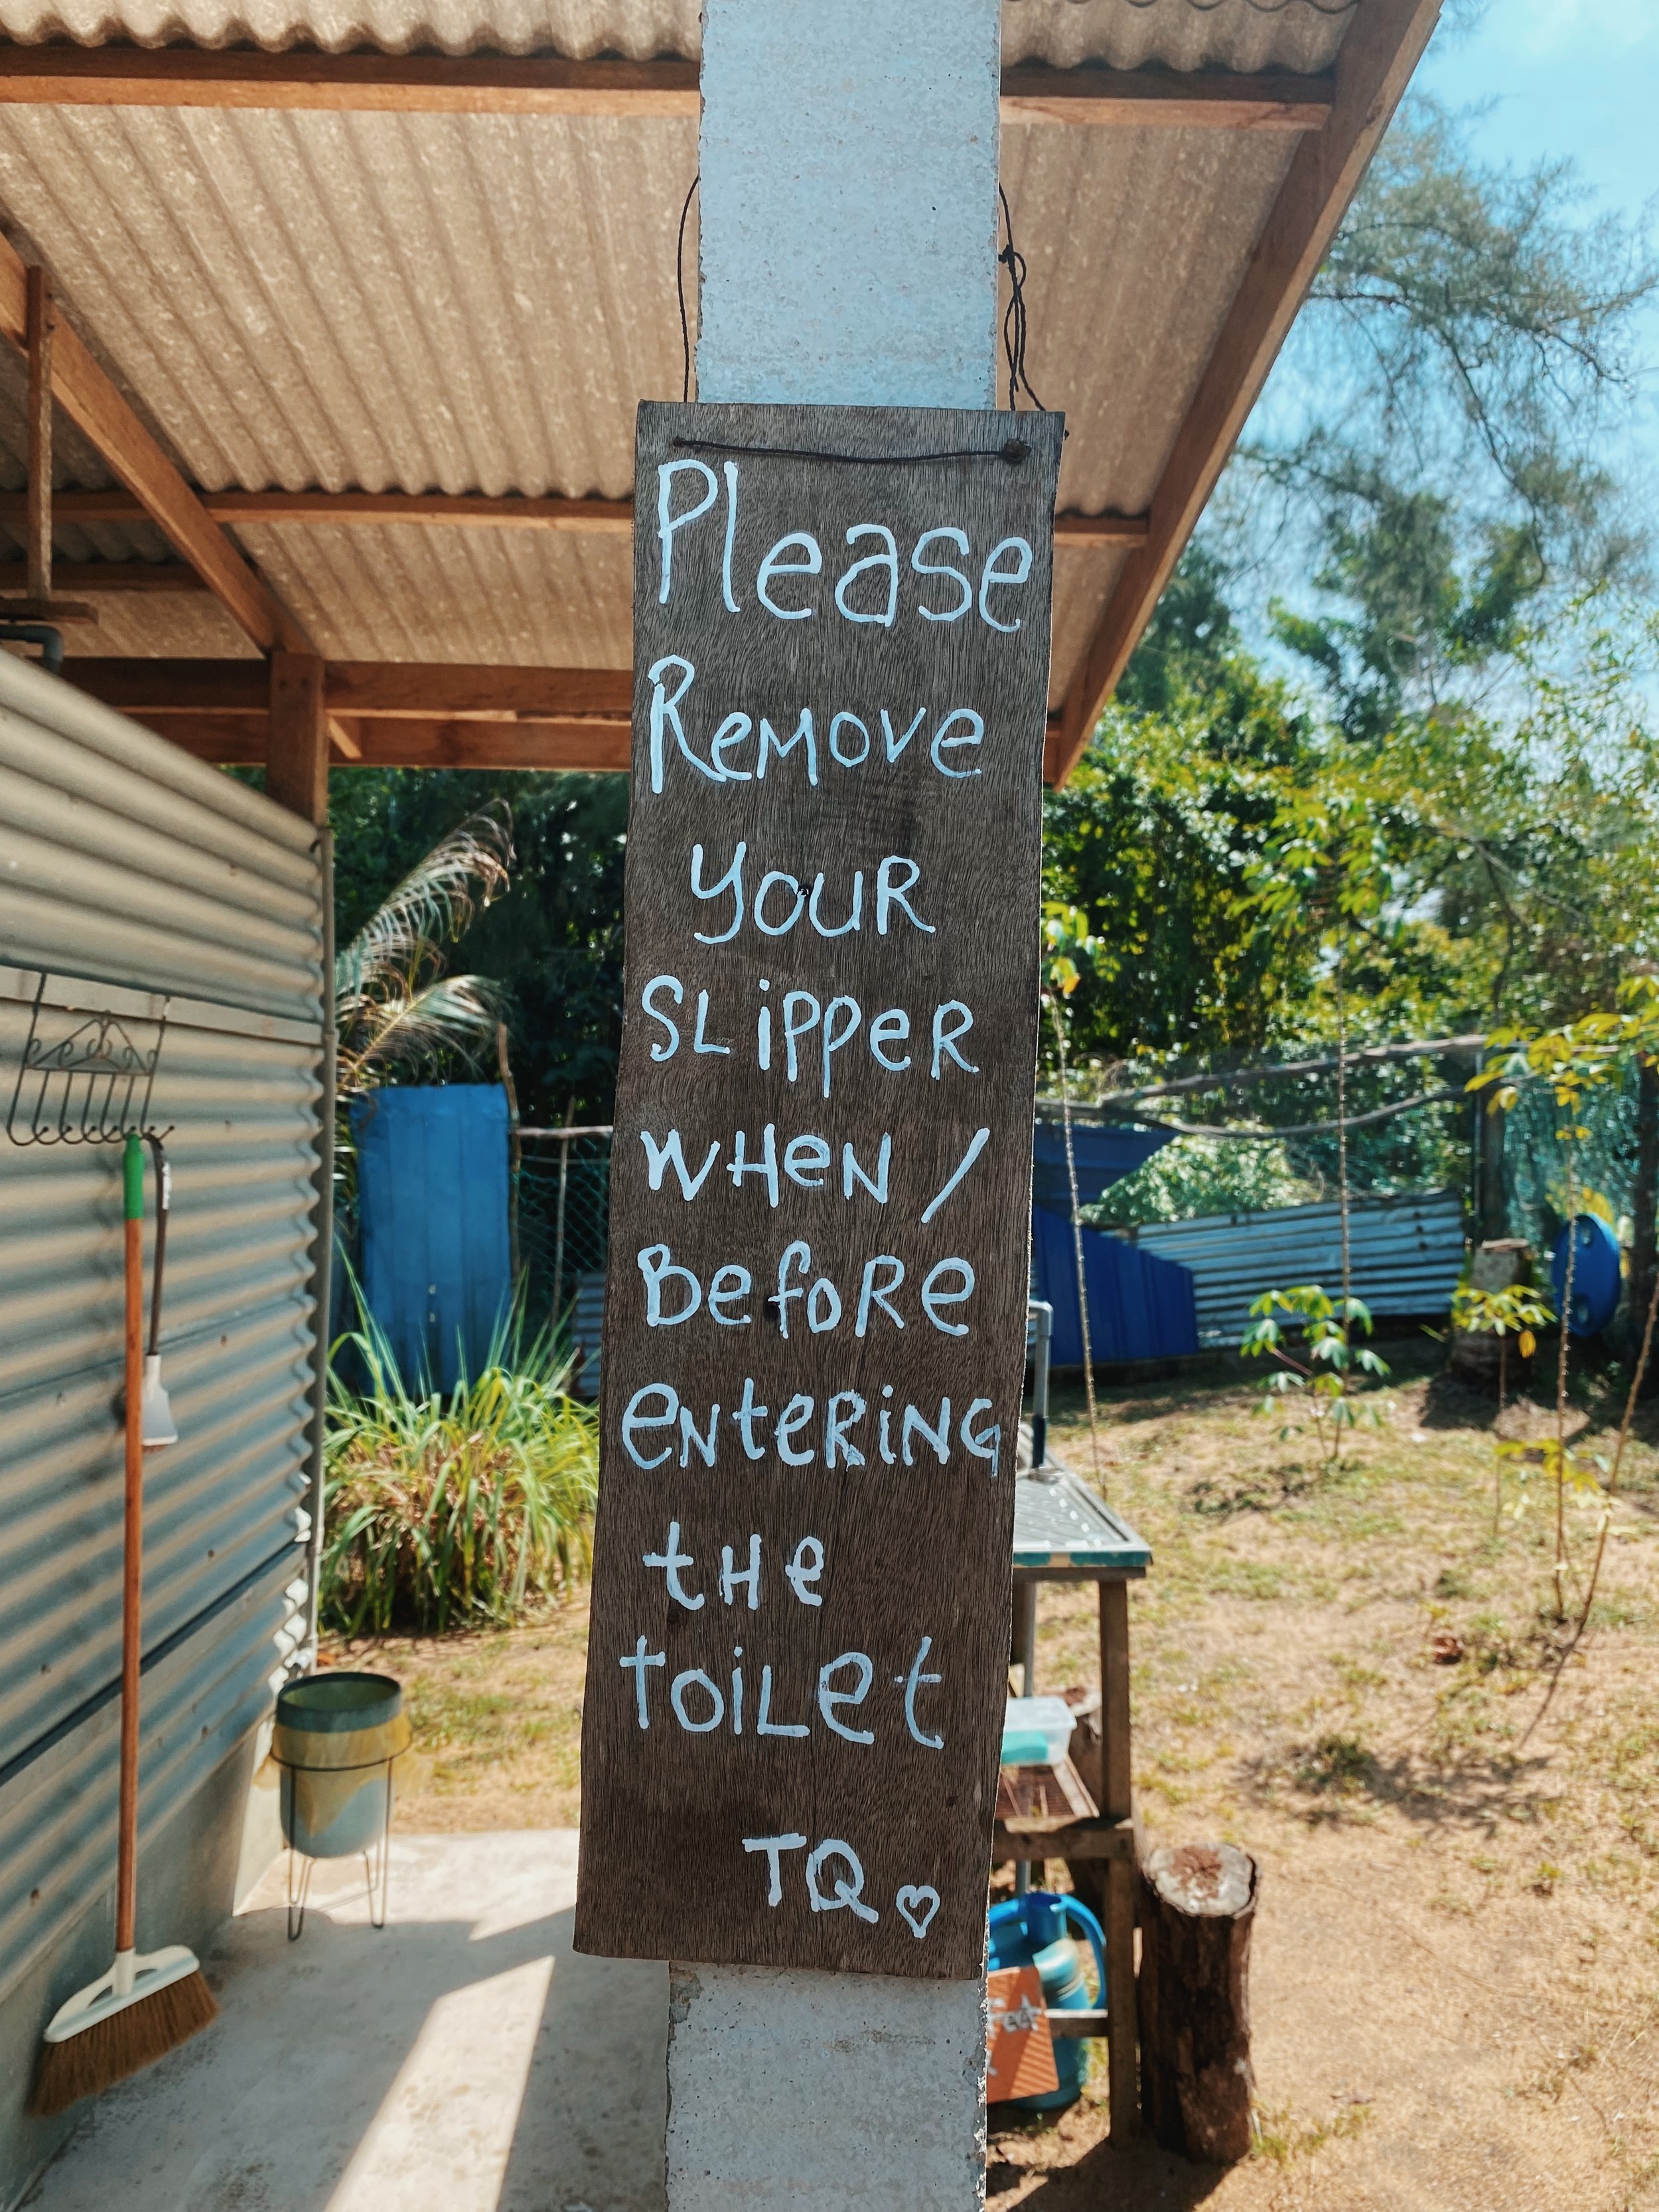 Please
Remove
your
SLipper
WHeN /
Before
eNteRiNG
the
toiLet
TQ ♡
Feet